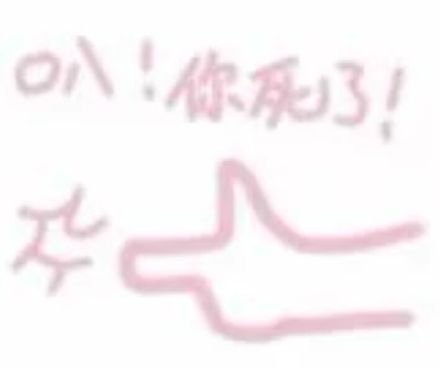 叭！你死了！